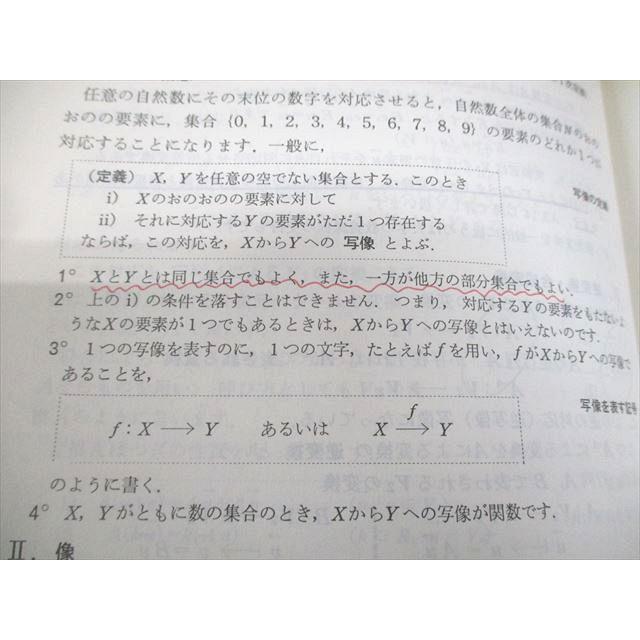 任意の自然数にその末位の数字を対応させると，自然数全体の集合Nのお
おのの要素に，集合 {0, 1, 2, 3, 4, 5, 6, 7, 8, 9} の要素のどれか1つが
対応することになります．一般に，
(定義) X, Yを任意の空でない集合とする．このとき
i) Xのおのおのの要素に対して
ii) それに対応するYの要素がただ1つ存在する
ならば，この対応を，XからYへの 写像 とよぶ．
写像の定義
1° XとYとは同じ集合でもよく，また，一方が他方の部分集合でもよい．
2° 上の i) の条件を落すことはできません．つまり，対応するYの要素をもたないよ
うなXの要素が1つでもあるときは，XからYへの写像とはいえないのです．
3° 1つの写像を表すのに，1つの文字，たとえばfを用い，fがXからYへの写像で
あることを，
写像を表す記号
f : X ⟶ Y あるいは X f⟶ Y
のように書く．
4° X, Yがともに数の集合のとき，XからYへの写像が関数です．
Ⅱ．像